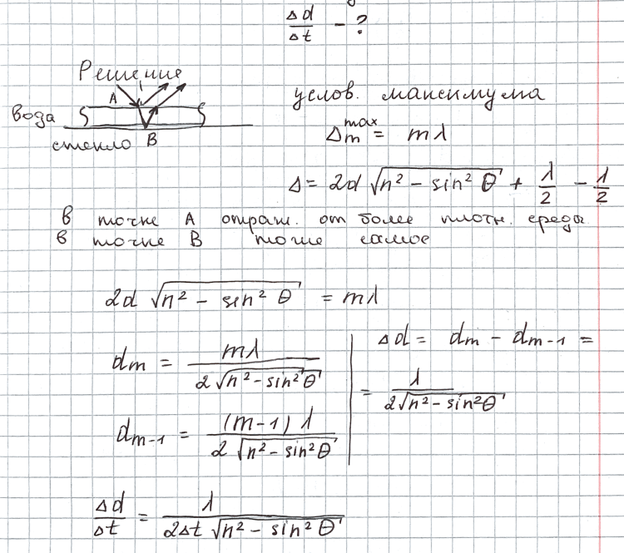 Δd/Δt - ?
Решение
A
вода
стекло B
услов. максимума
Δₘᵐᵃˣ = mλ
Δ = 2d √(n² - sin² θ) + λ/2 - λ/2
в точке А отраж. от более плотн. среды
в точке В тоже самое
2d √(n² - sin² θ) = mλ
dₘ = mλ / 2√(n² - sin² θ)
dₘ₋₁ = (m-1) λ / 2 √(n² - sin² θ)
Δd = dₘ - dₘ₋₁ =
= λ / 2√(n² - sin² θ)
Δd/Δt = λ / 2Δt √(n² - sin² θ)